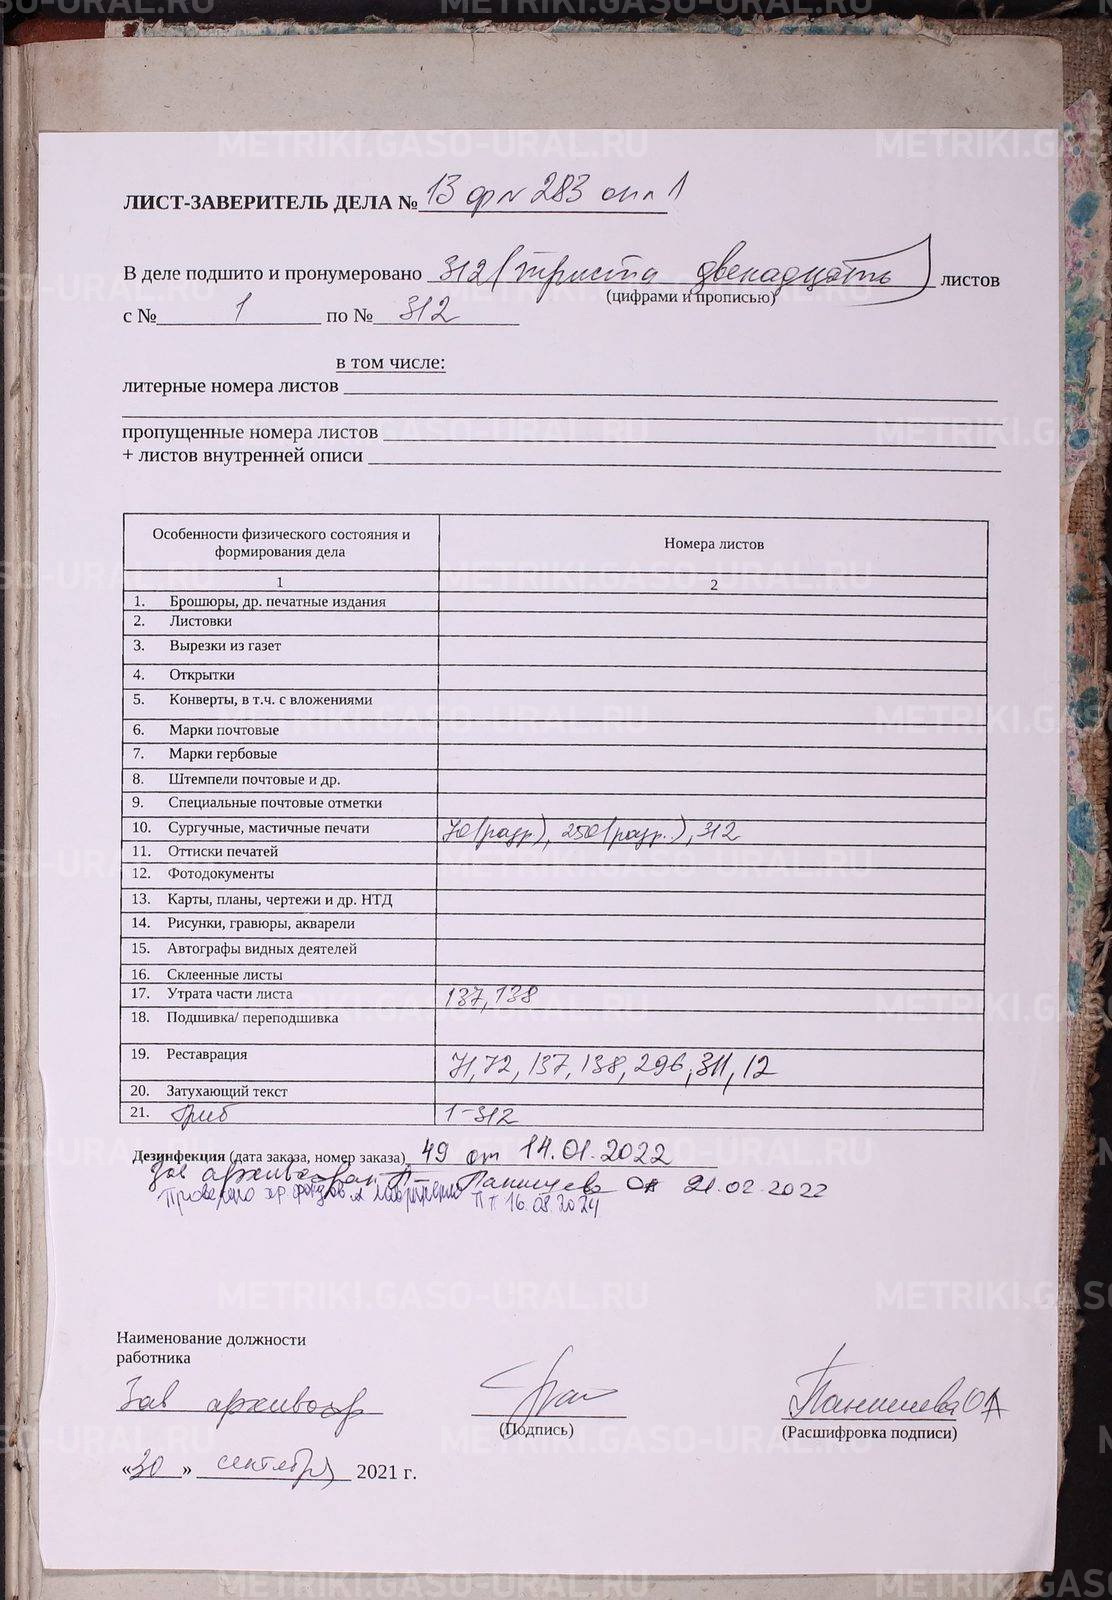 ЛИСТ-ЗАВЕРИТЕЛЬ ДЕЛА № 13 ф № 283 оп 1
В деле подшито и пронумеровано 312 (триста двенадцать) листов
(цифрами и прописью)
с № 1 по № 312
в том числе:
литерные номера листов
пропущенные номера листов
+ листов внутренней описи
Особенности физического состояния и формирования дела
Номера листов
1 2
1. Брошюры, др. печатные издания
2. Листовки
3. Вырезки из газет
4. Открытки
5. Конверты, в т.ч. с вложениями
6. Марки почтовые
7. Марки гербовые
8. Штемпели почтовые и др.
9. Специальные почтовые отметки
10. Сургучные, мастичные печати 70(разр.), 250(разр.), 312
11. Оттиски печатей
12. Фотодокументы
13. Карты, планы, чертежи и др. НТД
14. Рисунки, гравюры, акварели
15. Автографы видных деятелей
16. Склеенные листы
17. Утрата части листа 137, 138
18. Подшивка/ переподшивка
19. Реставрация 71, 72, 137, 138, 296, 311, 12
20. Затухающий текст
21. Гриб 1-312
Дезинфекция (дата заказа, номер заказа) 49 от 14.01.2022
Зав архивохран Панишева ОА 21.02.2022
Проверено хр. фондов 16.08.2024
Наименование должности
работника
Зав архивохр
(Подпись)
Панишева ОА
(Расшифровка подписи)
«30» сентября 2021 г.
METRIKI.GASO-URAL.RU